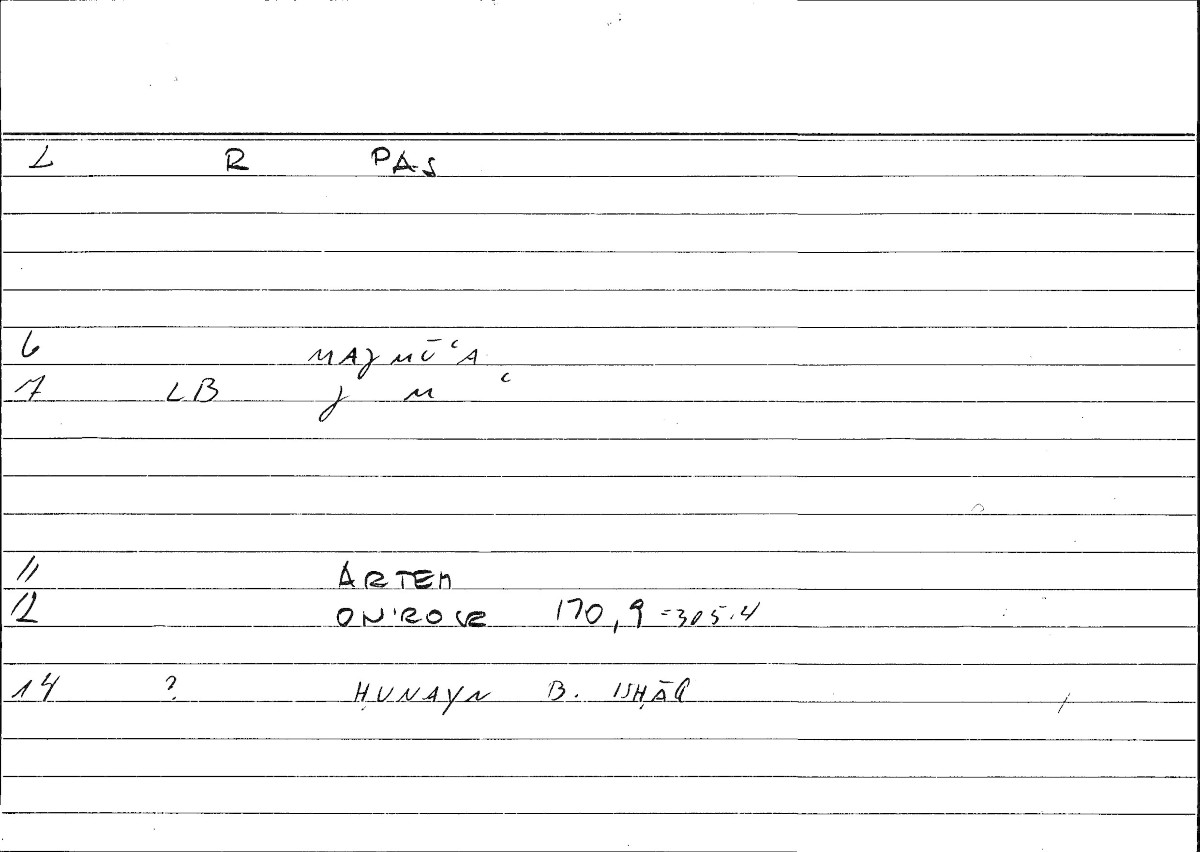 L R PAS
6 MAJMŪʿA
7 LB J M ʿ
11 ARTEM
12 ONIROCR 170,9 =305.4
14 ? ḤUNAYN B. ISḤĀQ